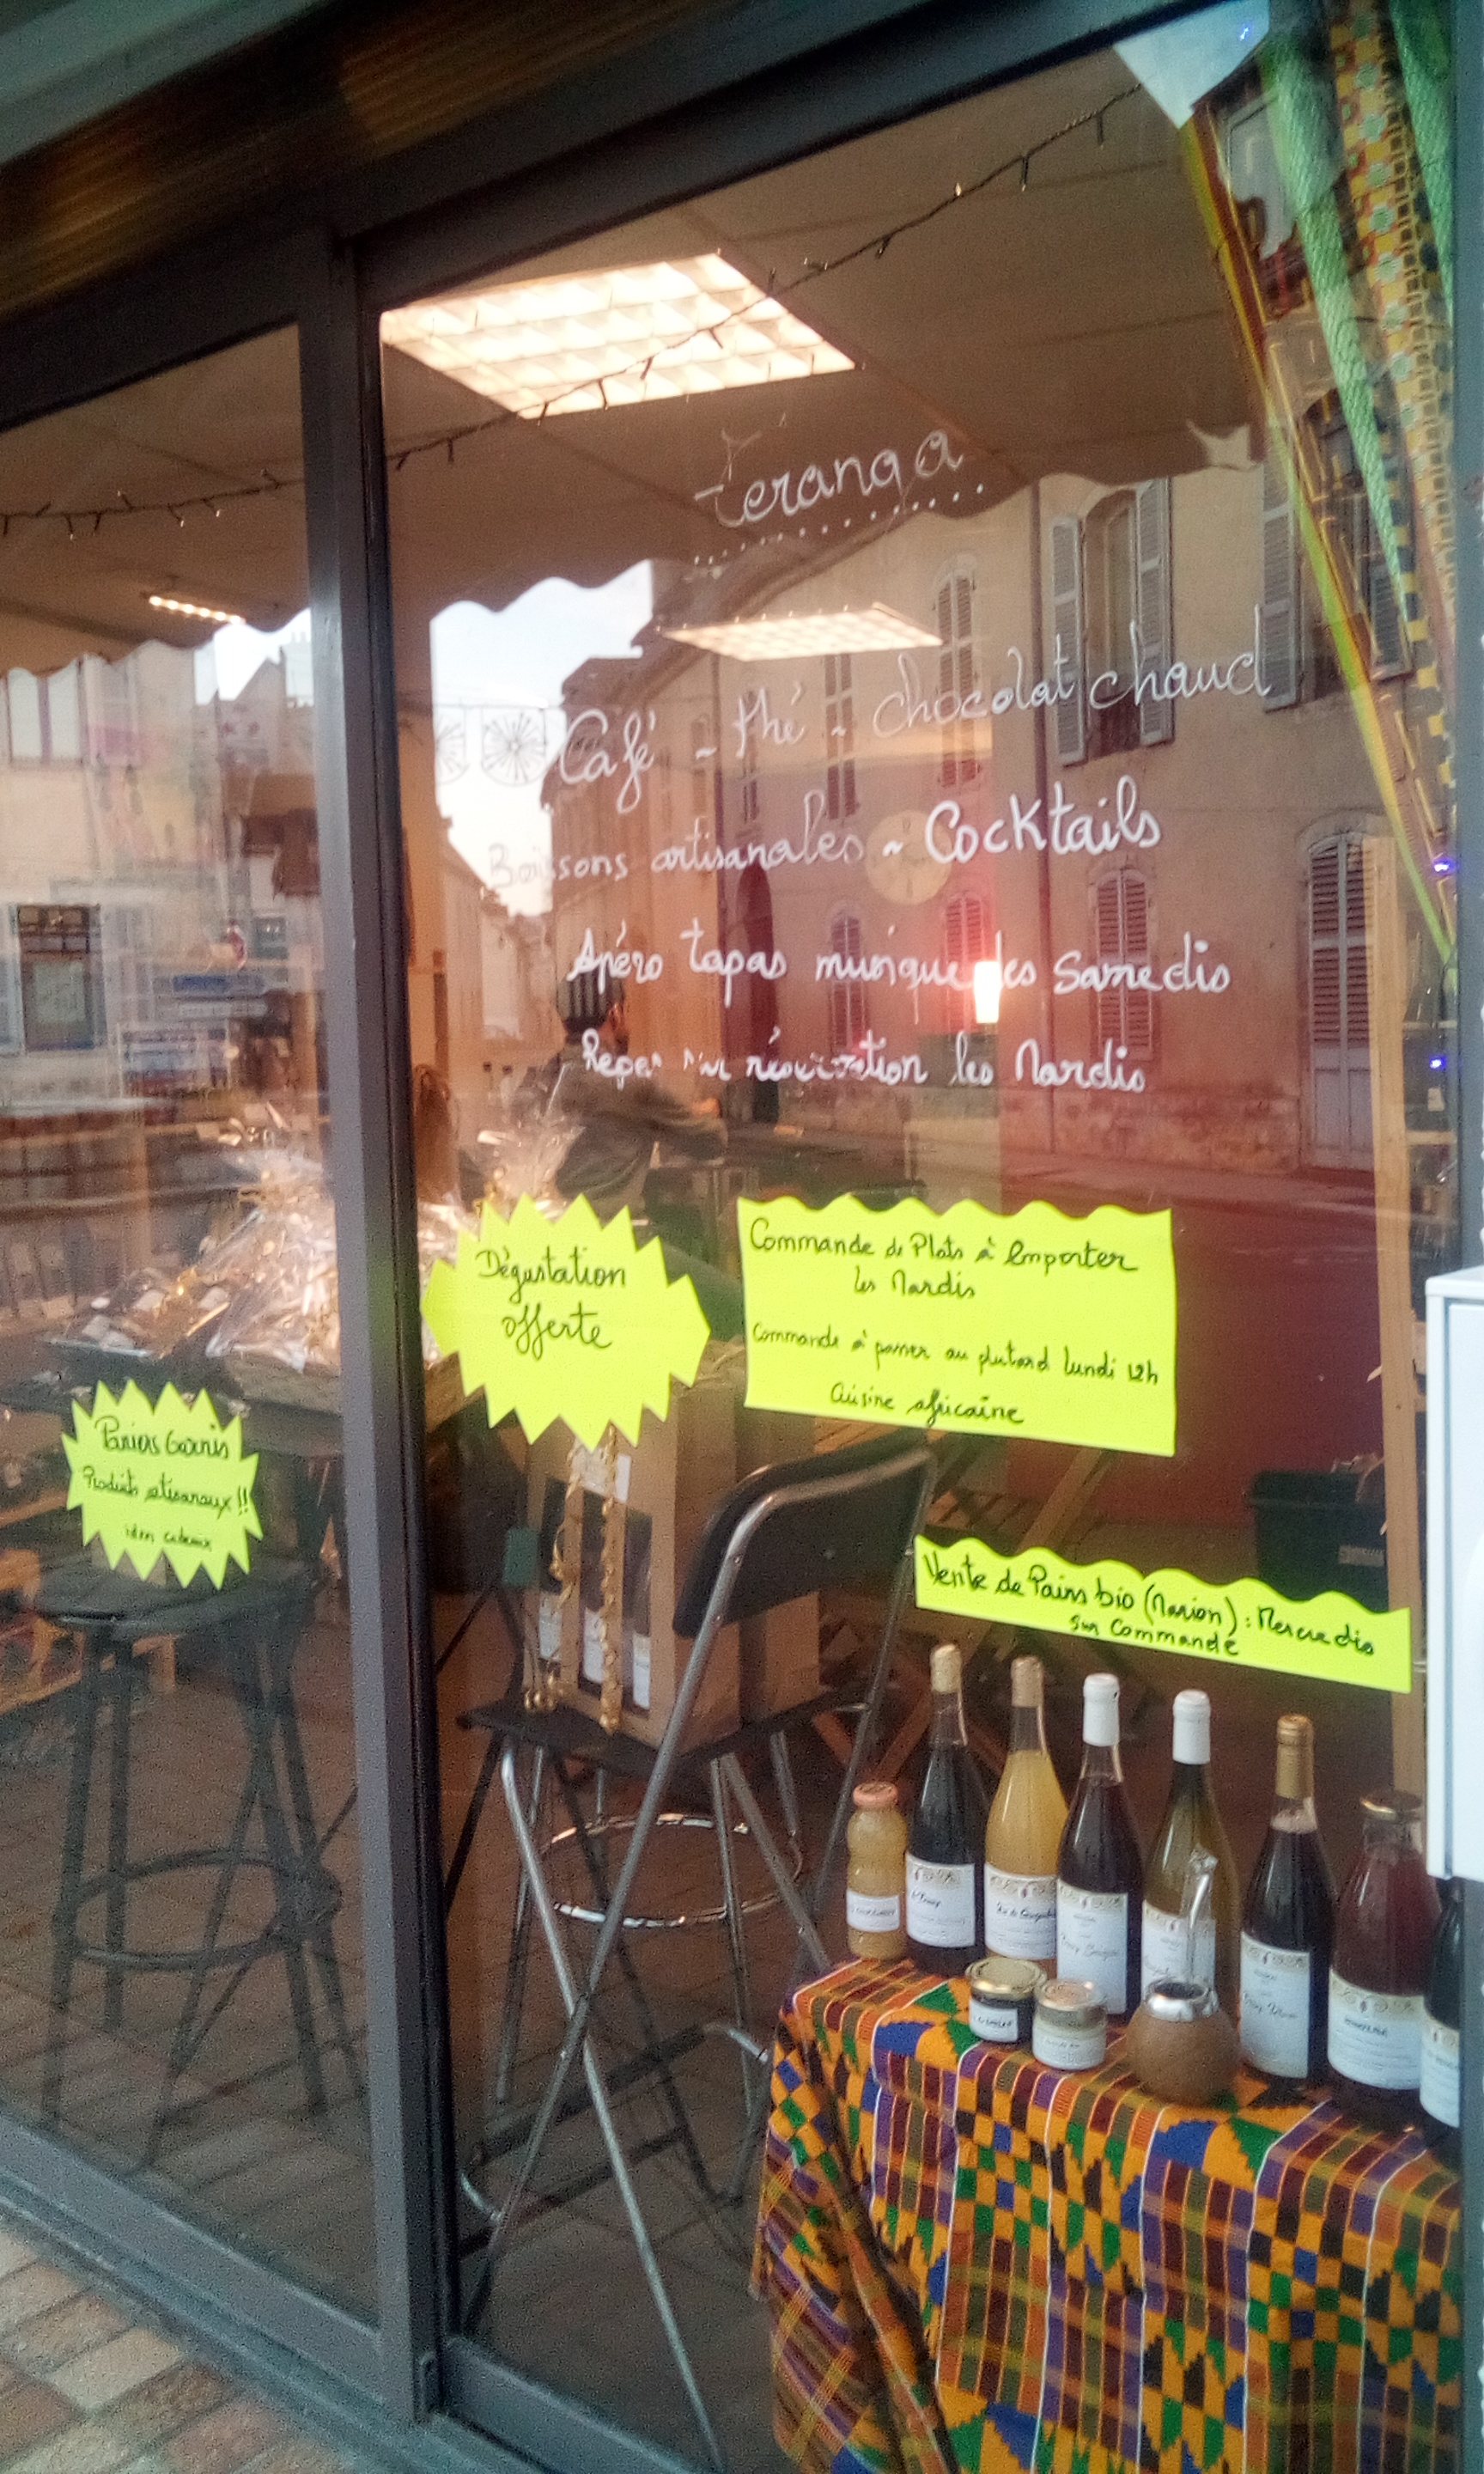 Teranga
Café ~ thé ~ chocolat chaud
Boissons artisanales ~ Cocktails
Apéro tapas musique les Samedis
Repas sur réservation les Mardis
Dégustation
offerte
Commande de Plats à Emporter
les Mardis
Commande à passer au plutard lundi 12h
Cuisine africaine
Paniers Garnis
Produits artisanaux !!
Vente de Pains bio (Marion) : Mercredis
Sur Commande